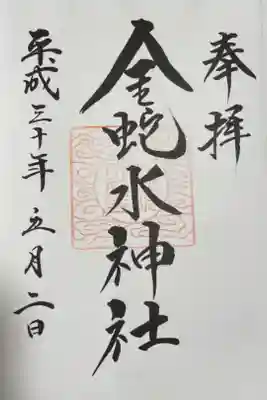 奉拝
金蛇水神社
平成三十年五月二日